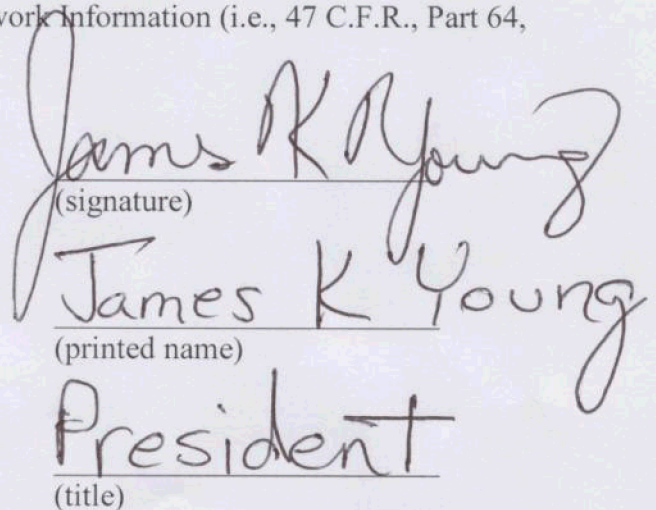 work Information (i.e., 47 C.F.R., Part 64,
James K Young
(signature)
James K Young
(printed name)
President
(title)